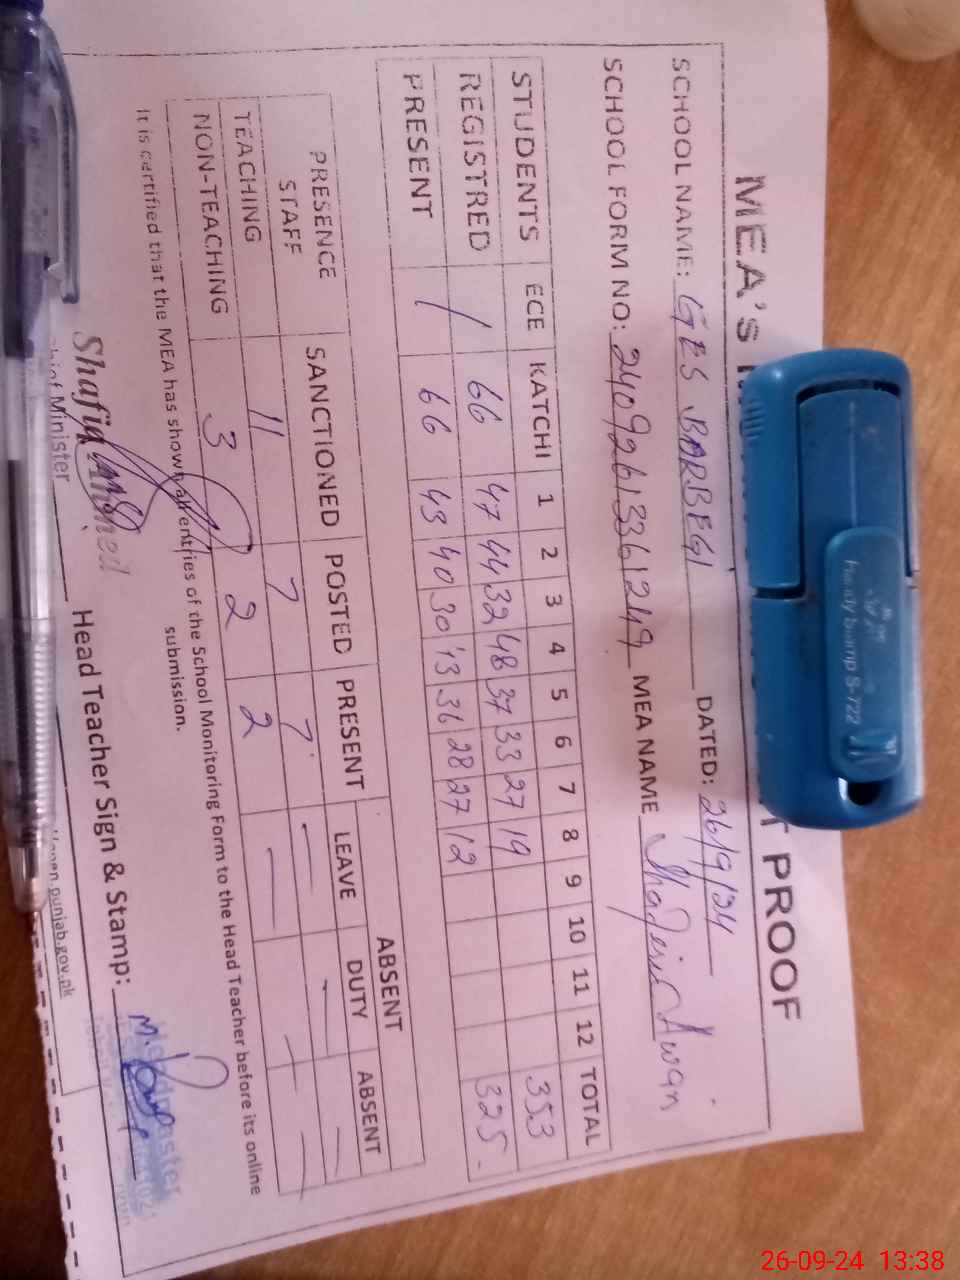 MEA'S
T PROOF
SCHOOL NAME: GES BARBEGI DATED: 26/9/24
SCHOOL FORM NO: MEA NAME Awan
STUDENTS ECE KATCHI 1 2 3 4 5 6 7 8 9 10 11 12 TOTAL
REGISTRED / 66 47 44 32 48 37 33 27 19 353
PRESENT 66 43 40 30 43 36 28 27 12 325
ABSENT
PRESENCE STAFF SANCTIONED POSTED PRESENT LEAVE DUTY ABSENT
TEACHING 11 7 7 — — —
NON-TEACHING 3 2 2 — — —
It is certified that the MEA has shown all entries of the School Monitoring Form to the Head Teacher before its online
submission.
Shafiq Ahmed
Head Teacher Sign & Stamp:
Chief Minister
open.punjab.gov.pk
handy stamp S-722
26-09-24 13:38